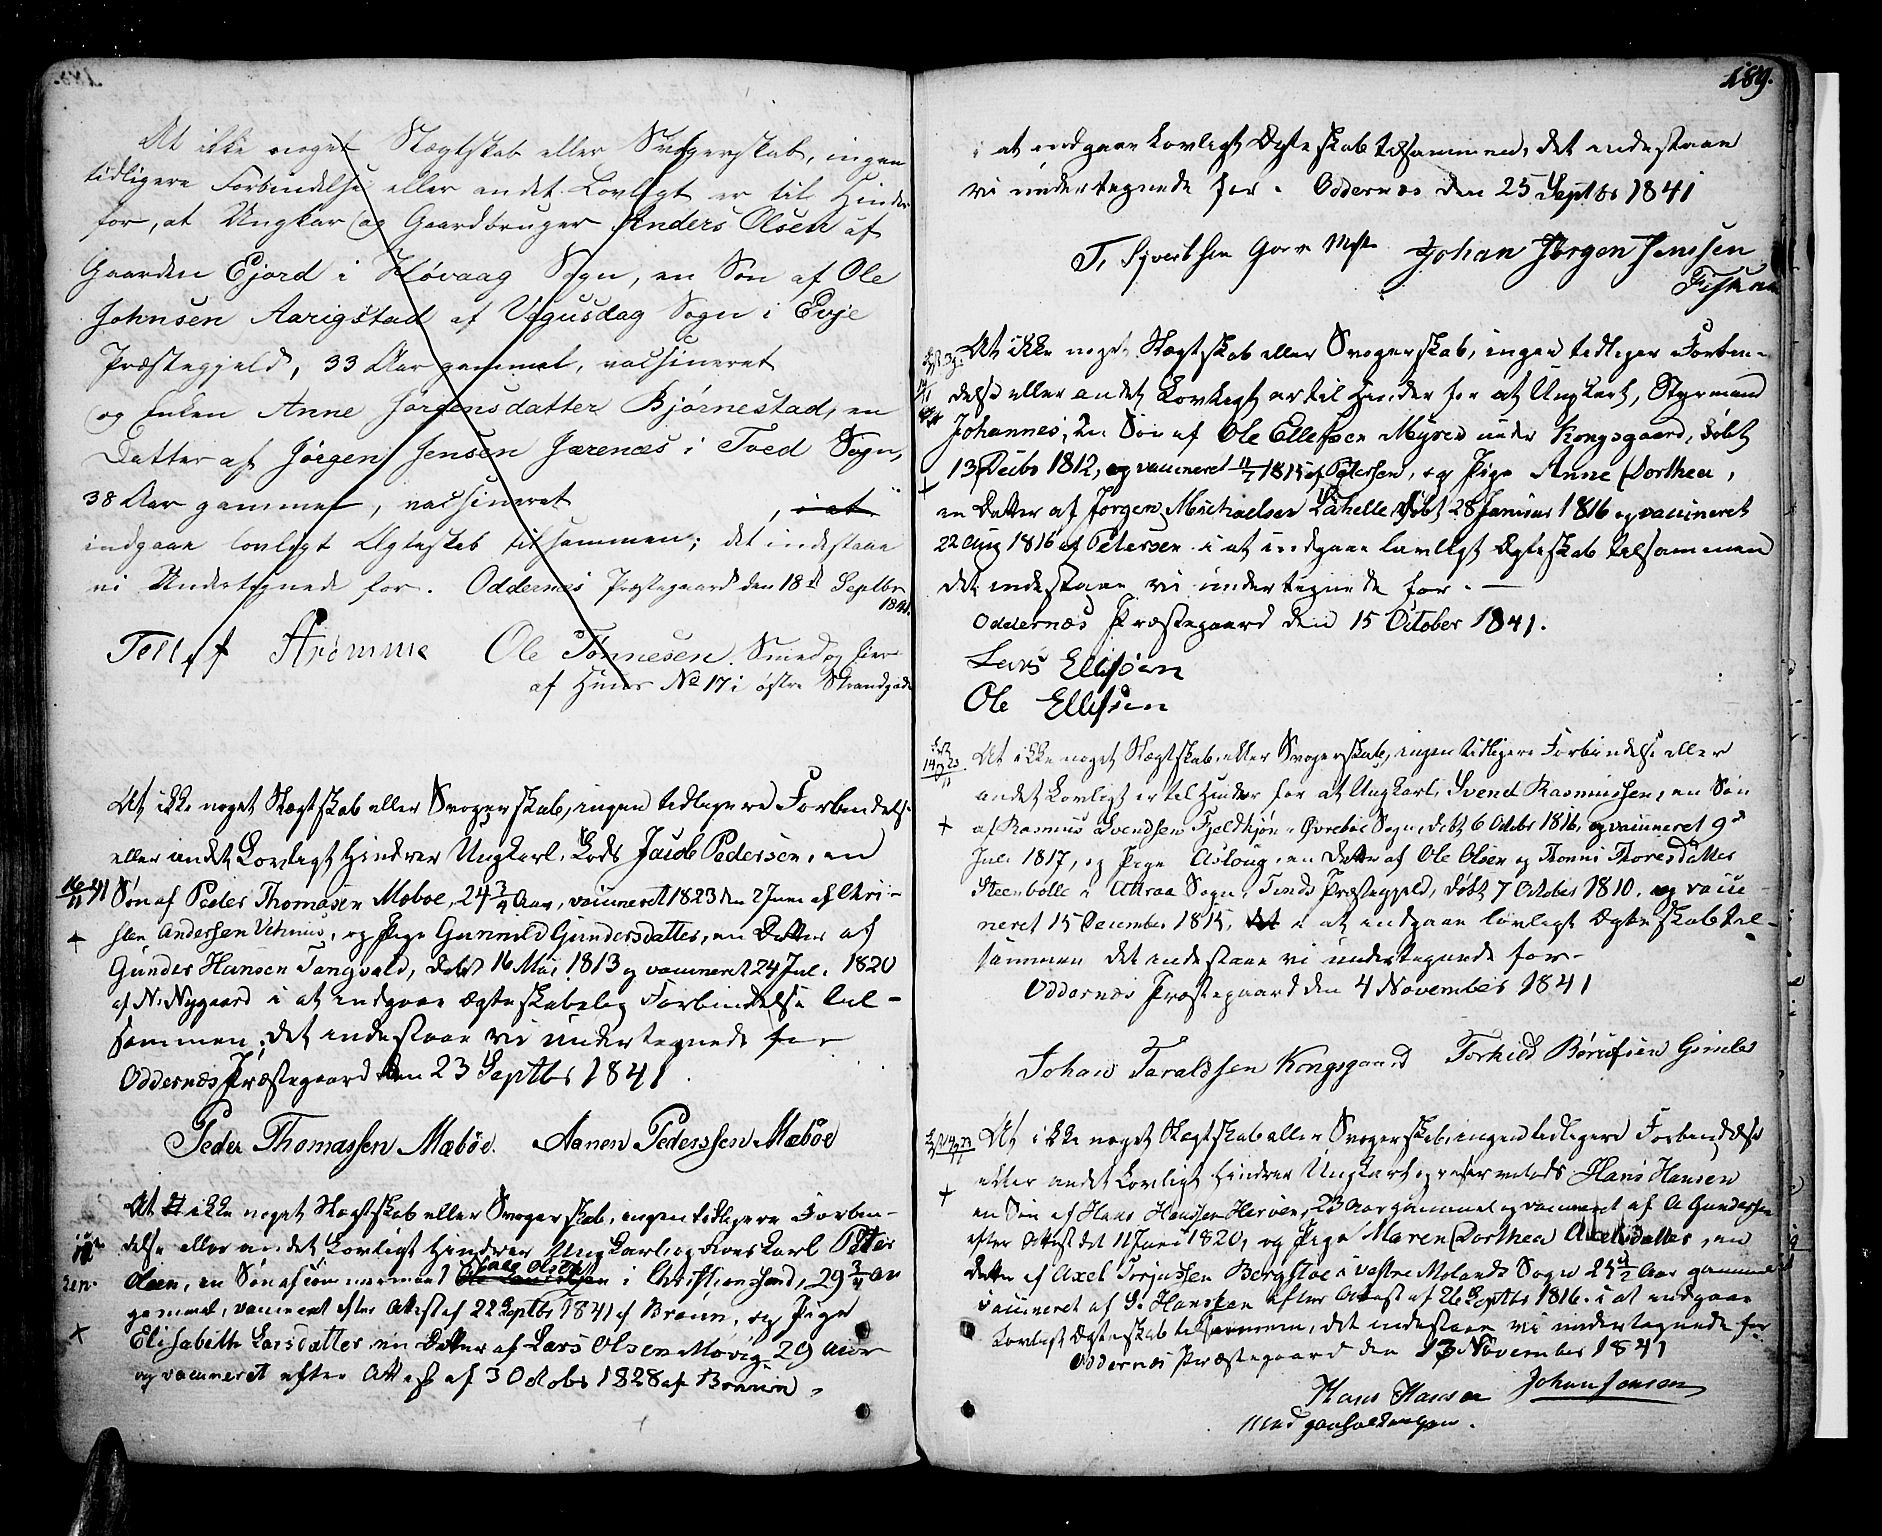 At ikke noget Slægtskab eller Svogerskab, ingen
tidligere Forbindelse eller andet Lovligt er til Hinder
for, at Ungkar og Gaardbruger Anders Olsen af
Gaarden Ejord i Høvaag Sogn, en Søn af Ole
Johnsen Aarigstad af Vegusdag Sogn i Evje
Præstegjeld, 33 Aar gammel, vaksineret
og Enken Anne Jørgensdatter Bjørnestad, en
Datter af Jørgen Jensen Jærenæs i Tved Sogn,
38 Aar gammel, vaksineret , i at
indgaae lovligt Ægteskab tilsammen; det indestaae
vi Undertegnede for. Oddernes Præstegaard den 18d Septbr
1841.
Tellef Strømme Ole Tønnesen. Smed og Eier
af Huus No 17 i østre Strandgade
At ikke noget Slægtskab eller Svogerskab, ingen tidligere Forbindelse
eller andet Lovligt hindrer Ungkarl, Lods Jacob Pedersen, en
16/11 41 Søn af Peder Thomasen Mæboe, 24 3/4 Aar, vaccineret 1823 den 2 Juni af Chri-
sten Andersen, og Pige Gunnild Gundersdatter, en Datter af
Gunder Hansen Tangvald, døbt 16 Mai 1813 og vaccineret 24 Juli 1820
af N. Nygaard i at indgaae Ægteskabelig Forbindelse til-
sammen, det indestaae vi undertegnede for
Oddernæs Præstegaard den 23 Septbr 1841.
Peder Thomassen Mæbøe. Aanen Pederssen Mæbøe
At ikke noget Slægtskab eller Svogerskab, ingen tidligere Forbin-
delse eller andet Lovligt hindrer Ungkarl og Peter
Olsen, en Søn af Lars Olsen i Christiansand, 29 3/4 Aar
gammel, vaccineret efter Attest af 22 Septbr 1841 af Bruun, og Pige
Elisabeth Larsdatter, en Datter af Lars Olsen Møvig, 29 Aar
og vaccineret efter Attest af 3 Octobr 1828 af Bruun,
189.
i at indgaae Lovligt Ægteskab tilsammen, det indestaae
vi undertegnede for. Oddernæs den 25 Septbr 1841
T. Sjvertsen Johan Jørgen Jenssen
At ikke noget Slægtskab eller Svogerskab, ingen tidligere Forbin-
delse eller andet Lovligt er til Hinder for at Ungkarl, Styrmand
Johannes, en Søn af Ole Ellefsen Myren under Kongsgaard, døbt
13 Decbr 1812, og vaccineret 1815 af Petersen, og Pige Anne Dorthea,
en Datter af Jørgen Michaelsen Lahelle, døbt 28 Januar 1816 og vaccineret
22 Aug 1816 af Petersen i at indgaae lovligt Ægteskab tilsammen
det indestaae vi undertegnede for. —
Oddernæs Præstegaard den 15 October 1841.
Lars Ellefsen
Ole Ellefsen
At ikke noget Slægtskab eller Svogerskab, ingen tidligere Forbindelse eller
andet Lovligt er til Hinder for at Ungkarl Svend Rasmussen, en Søn
af Rasmus Svendsen Fjeldkjøn i Øvrebøe Sogn, døbt 6 Octobr 1816, og vaccineret 9d
Juli 1817, og Pige Aasloug, en Datter af Ole Olsen og Thonni Thoresdatter
Steenbolle i Attraa Sogn, Tinds Præstegjeld, døbt 7 October 1810, og vacci-
neret 15 December 1815, i at indgaae lovligt Ægteskab til-
sammen det indestaae vi undertegnede for.
Oddernæs Præstegaard den 4 November 1841
Johan Taraldsen Kongsgaard Torkild Børufsen Gimles
At ikke noget Slægtskab eller Svogerskab, ingen tidligere Forbindelse
eller andet Lovligt hindrer Ungkarl og reservelods Hans Hansen
en Søn af Hans Hanssen Herøen, 23 Aar gammel og vaccineret af A Gundersen
efter Attest det 11 Juni 1820, og Pige Maren Dorthea Axelsdatter, en
Datter af Axel Torjussen Bergstøe i vestre Molands Sogn 25 1/2 Aar gammel
vaccineret af S. Hanssen efter Attest af 26 Septbr 1816. i at indgaae
Lovligt Ægteskab tilsammen, det indestaae vi undertegnede for
Oddernæs Præstegaard den 13 November 1841
Hans Hansen Johan Jensen